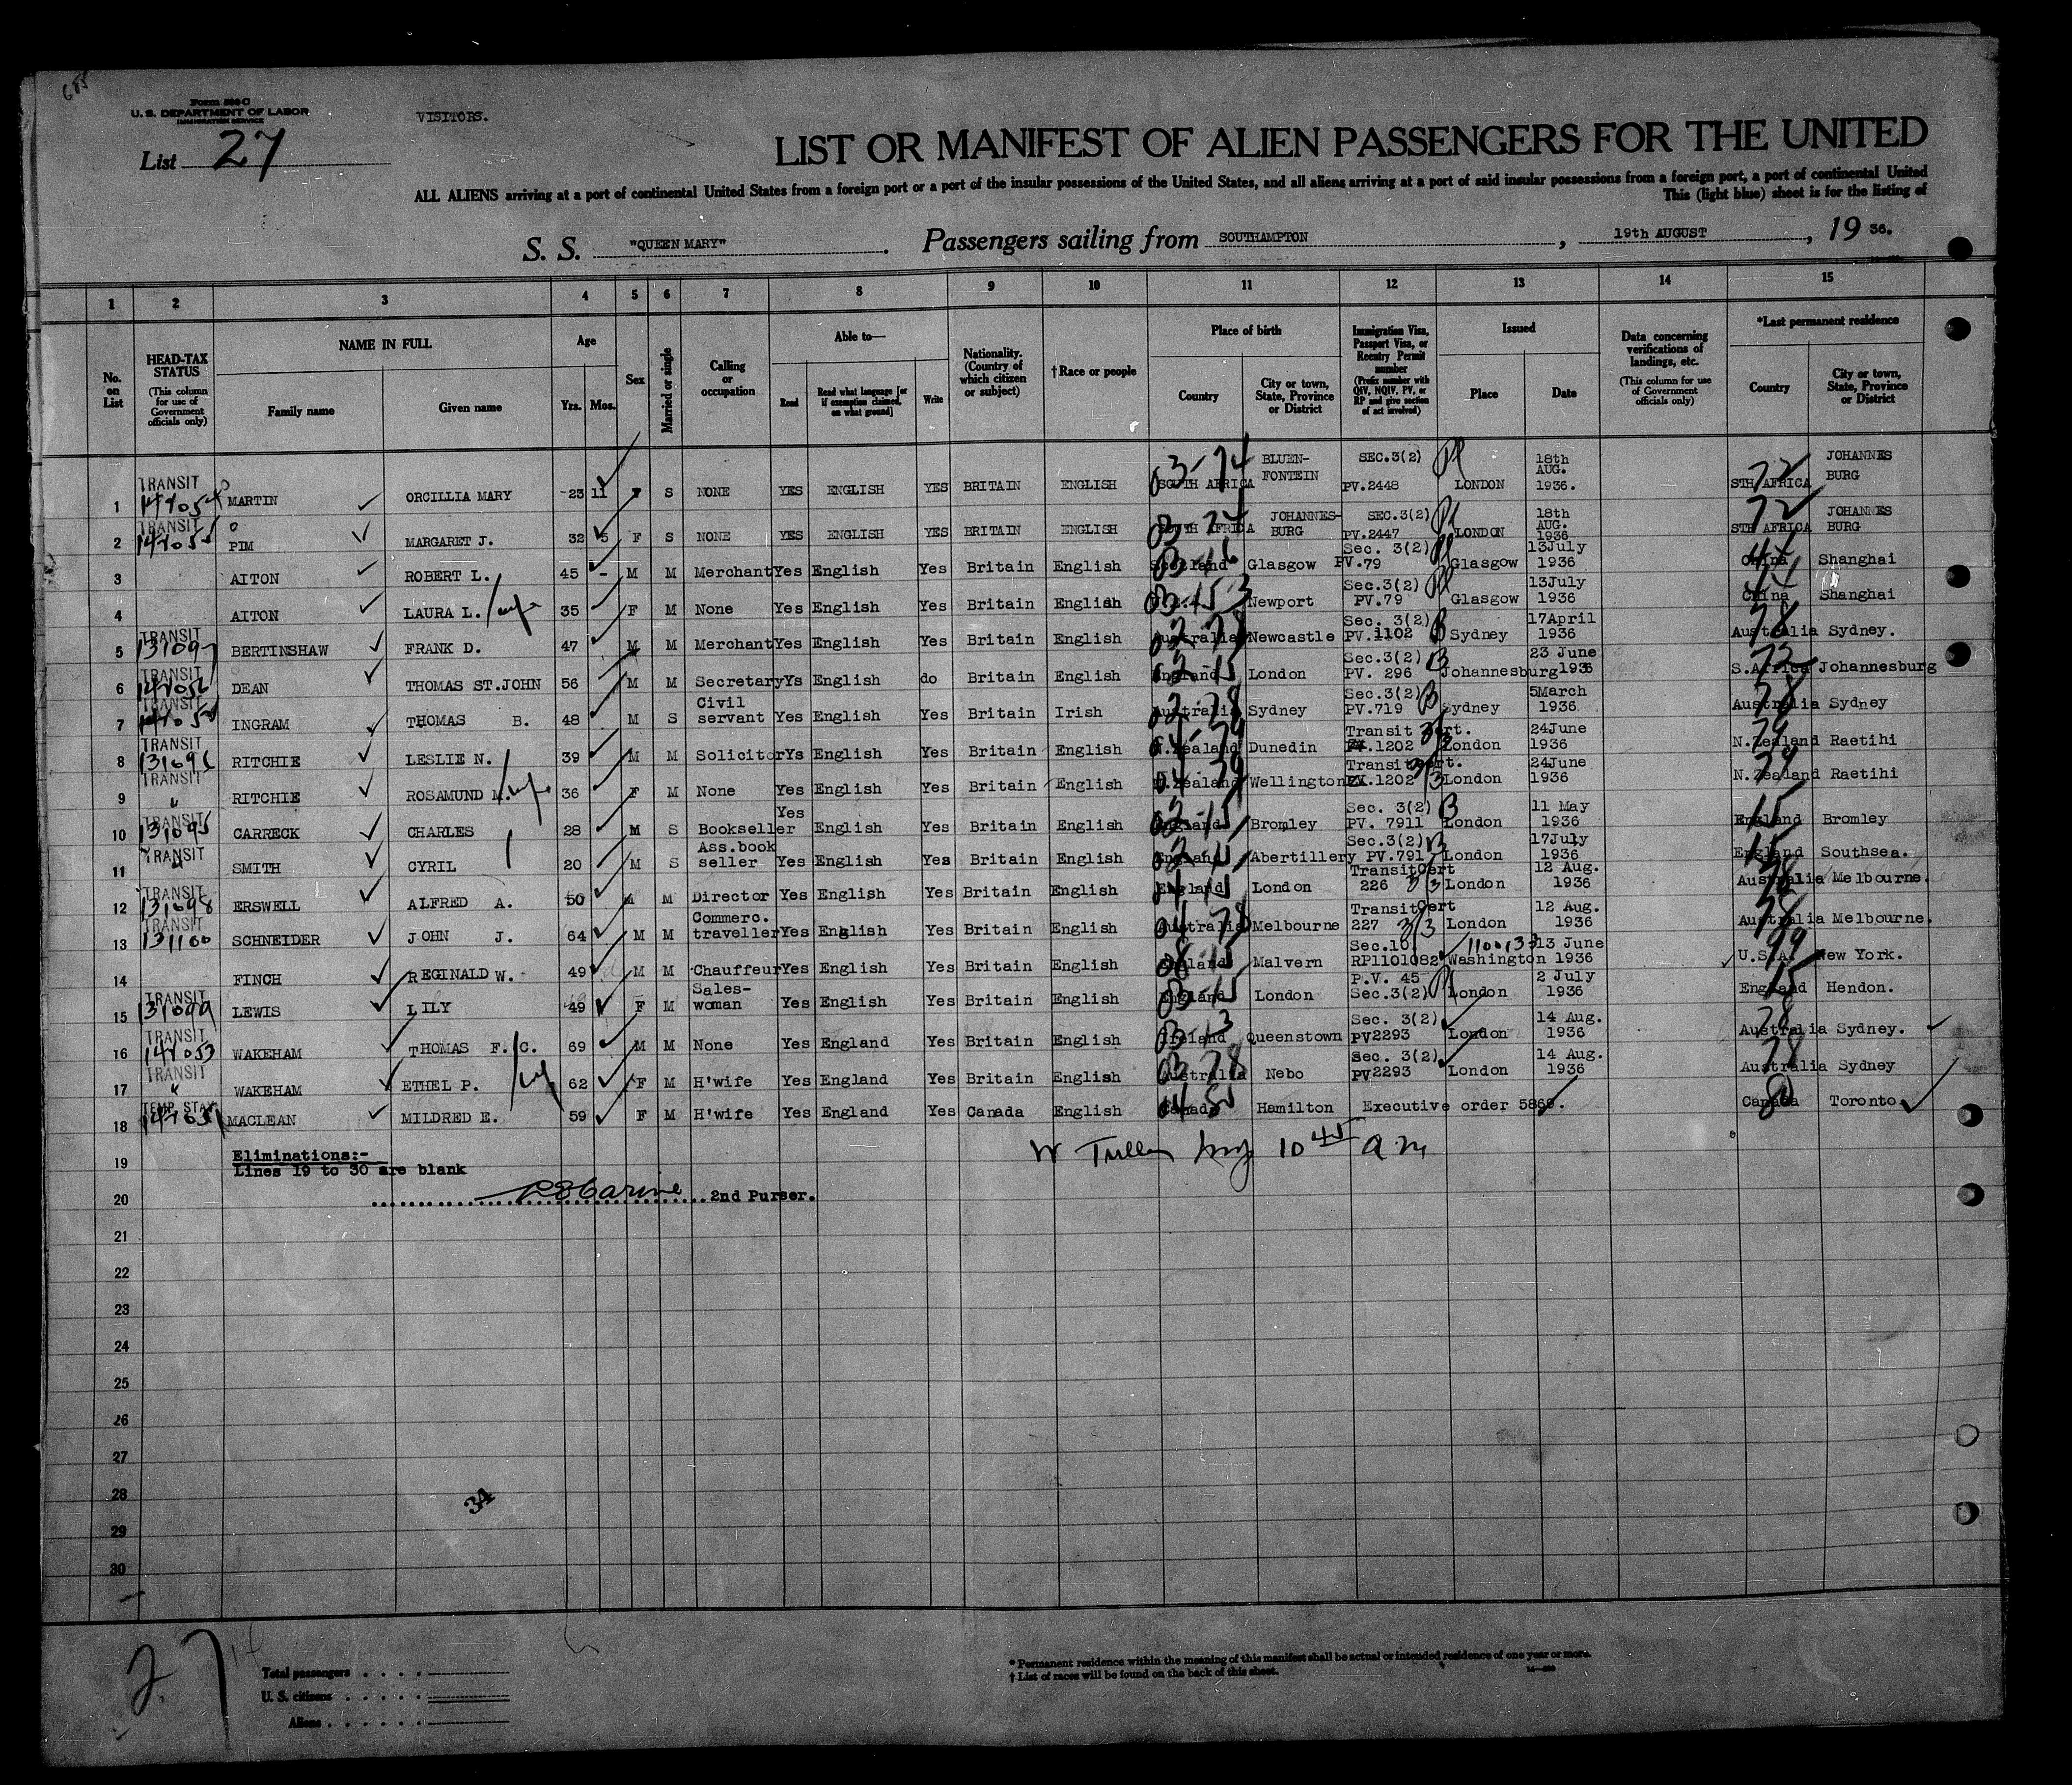 Form 500-C
U. S. DEPARTMENT OF LABOR
IMMIGRATION SERVICE
VISITORS.
List 27
LIST OR MANIFEST OF ALIEN PASSENGERS FOR THE UNITED
ALL ALIENS arriving at a port of continental United States from a foreign port or a port of the insular possessions of the United States, and all aliens arriving at a port of said insular possessions from a foreign port, a port of continental United
This (light blue) sheet is for the listing of
S. S. "QUEEN MARY" . Passengers sailing from SOUTHAMPTON , 19th AUGUST , 19 36.
1 2 3 4 5 6 7 8 9 10 11 12 13 14 15
No. on List
HEAD-TAX STATUS (This column for use of Government officials only)
NAME IN FULL Family name Given name
Age Yrs. Mos.
Sex
Married or single
Calling or occupation
Able to— Read Read what language [or if exemption claimed, on what ground] Write
Nationality. (Country of which citizen or subject)
† Race or people
Place of birth Country City or town, State, Province or District
Immigration Visa, Passport Visa, or Reentry Permit number (Prefix number with QIV, NQIV, PV, or RP and give section of act involved)
Issued Place Date
Data concerning verifications of landings, etc. (This column for use of Government officials only)
*Last permanent residence Country City or town, State, Province or District
1 TRANSIT MARTIN ORCILLIA MARY 23 11 F S NONE YES ENGLISH YES BRITAIN ENGLISH 03-74 SOUTH AFRICA BLUEN-FONTEIN SEC.3(2) PV.2448 LONDON 18th AUG. 1936. 72 STH AFRICA JOHANNES BURG
2 TRANSIT PIM MARGARET J. 32 5 F S NONE YES ENGLISH YES BRITAIN ENGLISH SOUTH AFRICA JOHANNES-BURG SEC.3(2) PV.2447 LONDON 18th AUG. 1936 72 STH AFRICA JOHANNES BURG
3 AITON ROBERT L. 45 - M M Merchant Yes English Yes Britain English Scotland Glasgow Sec. 3(2) PV.79 Glasgow 13July 1936 China Shanghai
4 AITON LAURA L. /wife 35 F M None Yes English Yes Britain English Newport Sec.3(2) PV.79 Glasgow 13July 1936 China Shanghai
5 TRANSIT 131097 BERTINSHAW FRANK D. 47 M M Merchant Yes English Yes Britain English Australia Newcastle Sec. 3(2) PV.1102 Sydney 17April 1936 78 Australia Sydney.
6 TRANSIT DEAN THOMAS ST.JOHN 56 M M Secretary Ys English do Britain English England London Sec.3(2) PV. 296 Johannesburg 23 June 1936 72 S.Africa Johannesburg
7 TRANSIT INGRAM THOMAS B. 48 M S Civil servant Yes English Yes Britain Irish Australia Sydney Sec.3(2) PV.719 Sydney 5March 1936 78 Australia Sydney
8 TRANSIT 131096 RITCHIE LESLIE N. 39 M M Solicitor Ys English Yes Britain English N.Zealand Dunedin Transit Cert. 1202 London 24June 1936 79 N.Zealand Raetihi
9 TRANSIT " RITCHIE ROSAMUND M. /wife 36 F M None Yes English Yes Britain English N.Zealand Wellington Transit Cert. 1202 London 24June 1936 79 N.Zealand Raetihi
10 TRANSIT 131095 CARRECK CHARLES 28 M S Bookseller Yes English Yes Britain English England Bromley Sec. 3(2) PV. 7911 London 11 May 1936 15 England Bromley
11 TRANSIT " SMITH CYRIL 20 M S Ass.book seller Yes English Yes Britain English England Abertillery Sec.3(2) PV.791 London 17July 1936 15 England Southsea.
12 TRANSIT 131098 ERSWELL ALFRED A. 50 M M Director Yes English Yes Britain English England London TransitCert 226 London 12 Aug. 1936 78 Australia Melbourne.
13 TRANSIT 131100 SCHNEIDER JOHN J. 64 M M Commerc. traveller Yes English Yes Britain English 04 78 Australia Melbourne TransitCert 227 London 12 Aug. 1936 78 Australia Melbourne.
14 FINCH REGINALD W. 49 M M Chauffeur Yes English Yes Britain English England Malvern Sec.10 RP1101082 Washington 13 June 1936 99 U.S.A. New York.
15 TRANSIT 131099 LEWIS LILY 49 F M Sales-woman Yes English Yes Britain English 03-15 England London P.V. 45 Sec.3(2) London 2 July 1936 15 England Hendon.
16 TRANSIT 147053 WAKEHAM THOMAS F. C. 69 M M None Yes England Yes Britain English Ireland Queenstown Sec. 3(2) PV2293 London 14 Aug. 1936 78 Australia Sydney.
17 TRANSIT " WAKEHAM ETHEL P. 62 F M H'wife Yes England Yes Britain English 03 78 Australia Nebo Sec. 3(2) PV2293 London 14 Aug. 1936 78 Australia Sydney
18 TEMP. STAY MACLEAN MILDRED E. 59 F M H'wife Yes England Yes Canada English Canada Hamilton Executive order 5869. Canada Toronto
19 Eliminations:-
Lines 19 to 30 are blank
10 45 a m
20 2nd Purser.
21
22
23
24
25
26
27
28
34
29
30
27
Total passengers
U. S. citizens
Aliens
* Permanent residence within the meaning of this manifest shall be actual or intended residence of one year or more.
† List of races will be found on the back of this sheet.